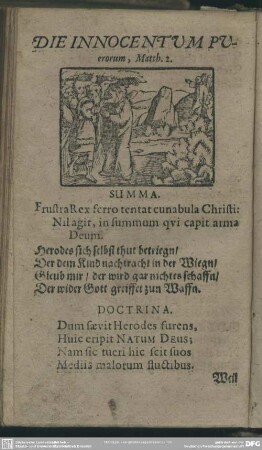 DIE INNOCENTUM PU-
erorum, Matth. 2.
SUMMA.
Frustra Rex ferro tentat cunabula Christi:
Nil agit, in summum qvi capit arma
Deum.
Herodes sich selbst thut betriegn/
Der dem Kind nachtracht in der Wiegn/
Gleub mir/ der wird gar nichtes schaffn/
Der wider Gott greiffet zun Waffn.
DOCTRINA.
Dum sævit Herodes furens,
Huic eripit NATUM DEUS;
Nam sic tueri hic scit suos
Mediis malorum fluctibus.
Weil